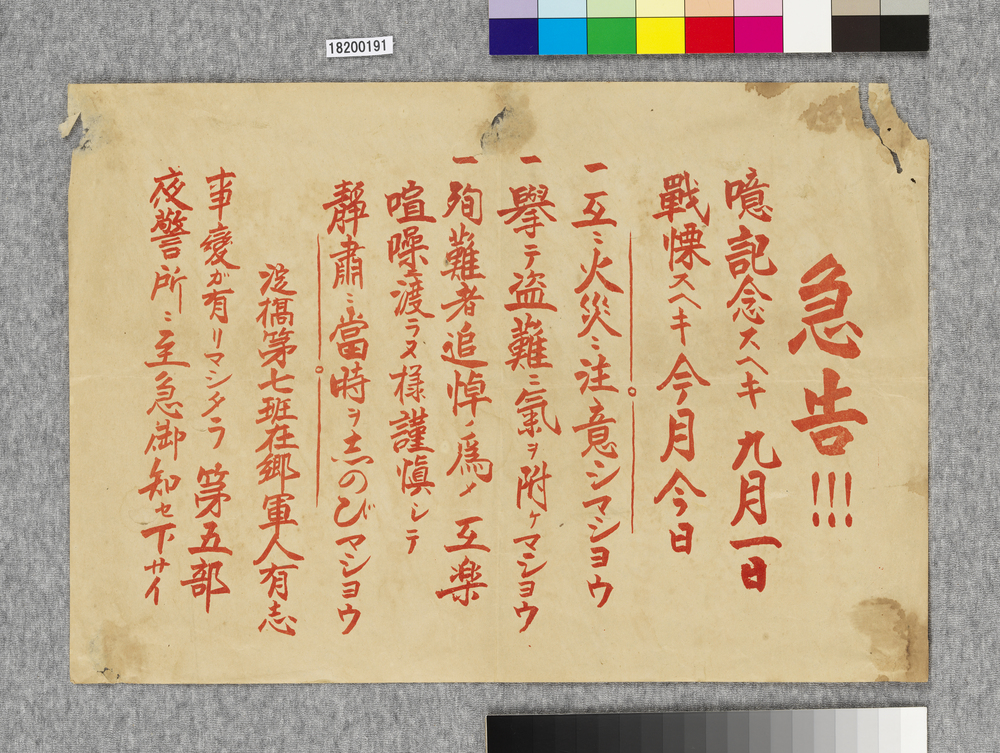 18200191
急告!!!
噫記念スヘキ 九月一日
戰慄スヘキ今月今日
一互ニ火災ニ注意シマショウ
一擧テ盗難ニ氣ヲ附ケマショウ
一殉難者追悼ノ爲メ 互楽
喧噪渡ラヌ様謹愼シテ
靜肅ニ當時ヲ志のびマショウ
淀橋第七班在郷軍人有志
事變ガ有リマシタラ 第五部
夜警所ニ至急御知セ下サイ